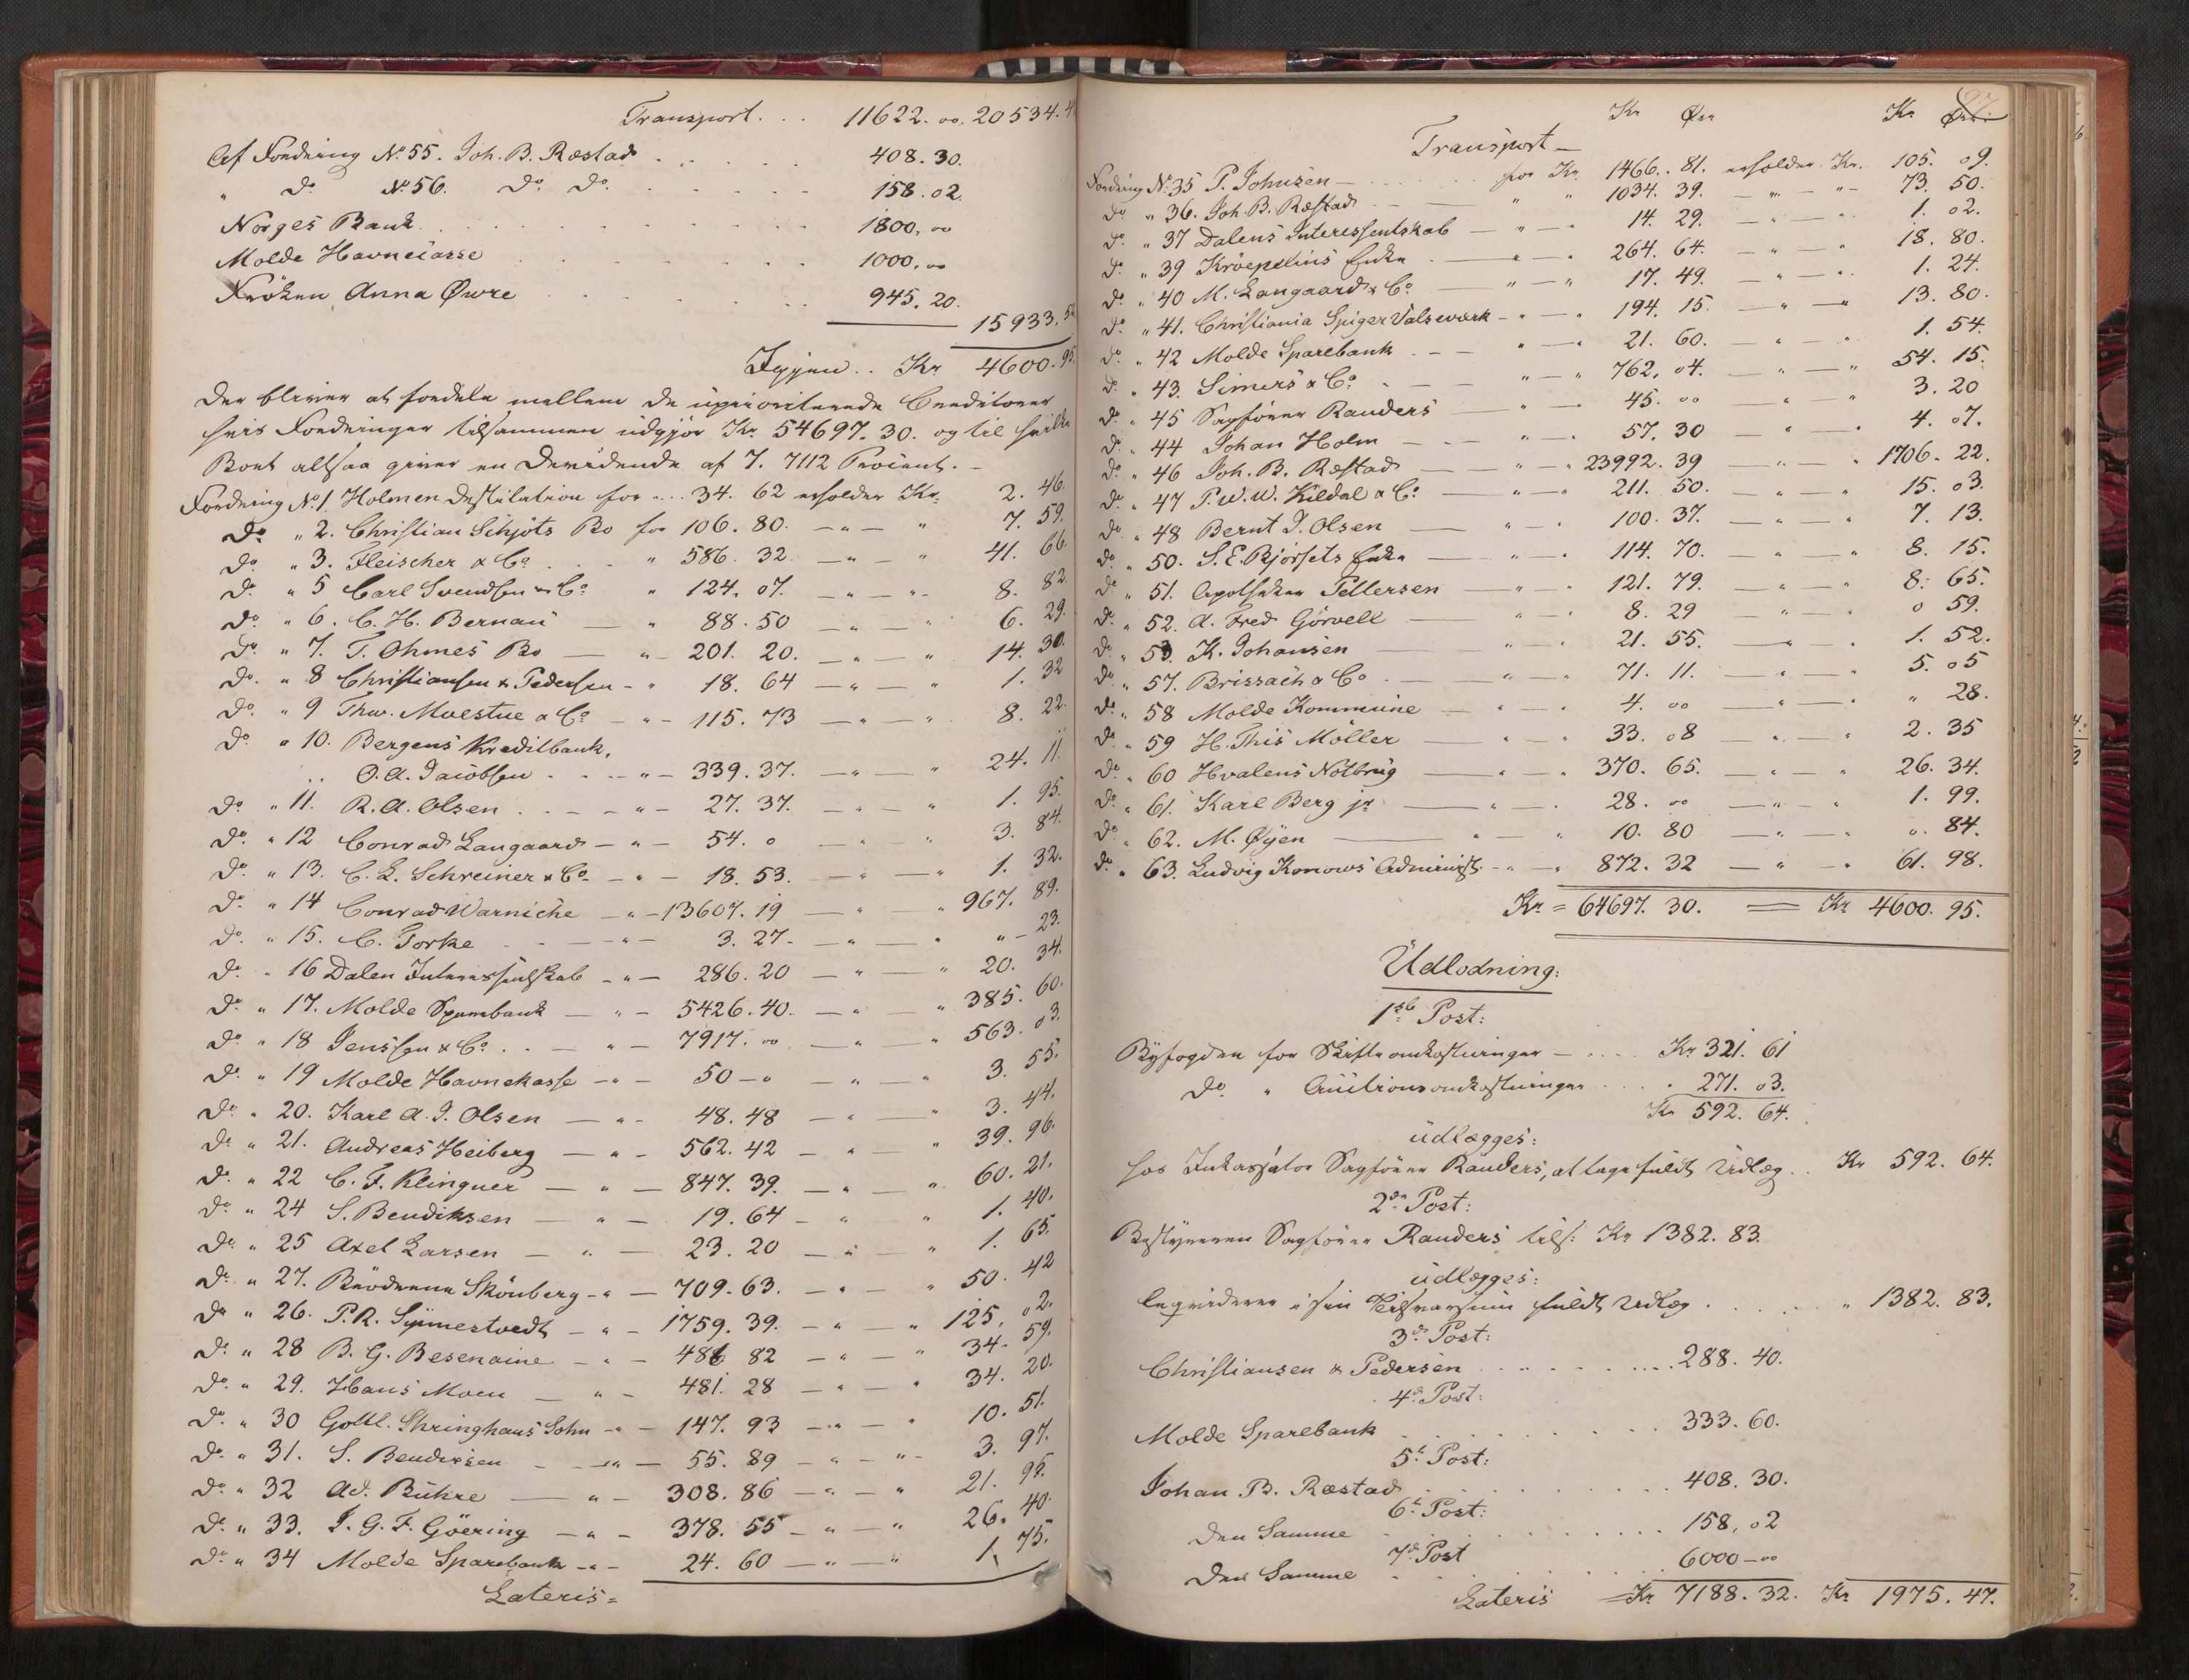 Transport . . . 11622. 00. 20534. 4
Af Fordring No. 55. Joh. B. Ræstad . . . . . 408. 30.
" Do No 56. Do Do. . . . . . . 158. 02.
Norges Bank . . . . . . . . 1800, 00
Molde Havnecasse . . . . . . 1000, 00
Frøken Anna Øwre . . . . . . 945. 20.
15933. 52
Igjen . . Kr 4600. 95.
der bliver at fordele mellem de uprioriterede Creditorer
hvis Fordringer tilsammen udgjør Kr. 54697. 30. og til hvilke
Boet altsaa giver en Devidende af 7. 7112 Procent. -
Fordring No. 1. Holmen Destilation for ... 34. 62 erholder Kr. 2. 46.
Do " 2. Christian Schjøts Bo for 106. 80. - " - " 7. 59.
Do " 3. Fleischer & Co . . . " 586. 32. - " - " 41. 66.
Do " 5 Carl Svendsen & Co " 124. 07. - " - " 8. 82.
Do " 6. C. H. Bernau - " 88. 50 - " - " 6. 29.
Do " 7. T. Ohmes Bo - " - 201. 20. - " - " 14. 30.
Do. " 8 Christiansen & Pedersen - " 18. 64 - " - " 1. 32
Do. " 9 Thw. Moestue & Co - " - 115. 73 - " - " 8. 22.
Do " 10. Bergens Kreditbank,
O. A. Jacobsen . . . - " - 339. 37. - " - " 24. 11.
Do " 11. R. A. Olsen . . - - " - 27. 37. - " - " 1. 95.
Do. " 12 Conrad Langaard - " - 54. 0 - " - " 3. 84.
Do " 13. C. L. Schreiner & Co - " - 18. 53. - " - " 1. 32.
Do. " 14 Conrad Warniche - " - 13607. 19 - " - " 967. 89.
Do. " 15. C. Torke - - - " - 3. 27. - " - " " - 23.
Do. " 16 Dalen Interessentskab - " - 286. 20 - " - " 20. 34.
Do " 17. Molde Sparebank - " - 5426. 40. - " - " 385. 60.
Do " 18 Jenssen & Co . . - " - 7917. 00 - " - " 563. 03.
Do. " 19 Molde Havnekasse - " - 50 - 0 - " - " 3. 55.
Do " 20. Karl A. J. Olsen - " - 48. 48 - " - " 3. 44.
Do " 21. Andreas Heiberg - " - 562. 42 - " - " 39. 96.
Do. " 22 C. F. Klinguer - " - 847. 39. - " - " 60. 21.
Do " 24 S. Bendiksen - " - 19. 64 - " - " 1. 40.
Do. " 25 Axel Larsen - " - 23. 20 - " - " 1. 65.
Do. " 27. Brødrene Skönberg - " - 709. 63. - " - " 50. 42
Do " 26. P. R. Synnestvedt - " - 1759. 39. - " - " 125, 02.
Do. " 28 B. G. Besenaine - " - 486 82 - " - " 34. 59.
Do. " 29. Hans Moen - " - 481. 28 - " - " 34. 20.
Do. " 30 Gottl. Shringhaus Sohn - " - 147. 93 - " - " 10. 51.
Do. " 31. S. Bendixsen - - " - 55. 89 - " - " - 3. 97.
Do. " 32 Ad. Bühre - " - 308. 86 - " - " 21. 95.
Do. " 33. J. G. F. Göering - " - 378. 55 - " - " 26. 40.
Do. " 34 Molde Sparebank - " - 24. 60 - " - " 1. 75.
Lateris =
97.
Kr Øre Kr Øre
Transport -
Fordring No. 35 P. Johnsen - . . . . . for Kr. 1466. 81. erholder Kr. 105. 09.
Do " 36. Joh. B. Ræstad . . - " " 1034. 39. - " - " - 73. 50.
Do. " 37 Dalens Interessentskab - " - " 14. 29. - " - " 1. 02.
Do. " 39 Kröepelins Enke . - " - " 264. 64. - " - " 18. 80.
Do. " 40 M. Langaard & Co - " - " 17. 49. - " - " 1. 24.
Do. " 41. Christiania Spiger Valseværk - " - " 194. 15. - " - " 13. 80.
Do. " 42 Molde Sparebank . - " - " 21. 60. - " - " 1. 54.
Do. " 43. Simers & Co . - - " - " 762. 04. - " - " 54. 15.
Do. " 45 Sagfører Randers - " - " 45. 00 - " - " 3. 20
Do. " 44 Johan Holm - - - " - " 57. 30 - " - " 4. 07.
Do. " 46 Joh. B. Ræstad - " - " 23992. 39 - " - " 1706. 22.
Do. " 47 P. W. W. Kildal & Co - " - " 211. 50. - " - " 15. 03.
Do. " 48 Bernt J. Olsen - " - " 100. 37. - " - " 7. 13.
Do. " 50. S. E. Bjørsets Enke - " - " 114. 70. - " - " 8. 15.
Do " 51. Apotheker Pettersen - " - " 121. 79. - " - " 8. 65.
Do. " 52. A. Fred Görvell - " - " 8. 29 - " - " 0 59.
Do. " 53. K. Johansen - " - " 21. 55. - " - " 1. 52.
Do. " 57. Brissach & Co . - " - " 71. 11. - " - " 5. 05
Do. " 58 Molde Kommune - " - " 4. 00 - " - " " 28.
Do. " 59 H. Ths Møller - " - " 33. 08 - " - " 2. 35
Do. " 60 Hvalens Notbrug - " - " 370. 65. - " - " 26. 34.
Do. " 61. Karl Berg jr - " - " 28. 00 - " - " 1. 99.
Do. " 62. M. Øyen - " - " 10. 80 - " - " 0. 84.
Do. " 63. Ludvig Konows Administ. - " - " 872. 32 - " - " 61. 98.
Kr = 64697. 30. = Kr 4600. 95.
Udlodning:
1ste Post:
Byfogden for Skifteomkostninger - . . . . Kr 321. 61
Do " Auctionsomkostninger . . . . " 271. 03.
Kr 592. 64.
udlægges:
hos Inkassator Sagfører Randers, at tage fuldt Udlæg . . Kr 592. 64.
2den Post:
Bestyreren Sagfører Randers tils: Kr 1382. 83.
udlægges:
leqviderer i sin fuldt Udlæg . . . . . " 1382. 83.
3de Post:
Christiansen & Pedersen . . . . . . . . 288. 40.
4de Post:
Molde Sparebank . . . . . . . . 333. 60.
5te Post:
Johan B. Ræstad . . . . . . . . 408. 30.
6te Post:
Den Samme . . . . . . . . 158, 02
7de Post
Den Samme . . . . . . . . 6000 - 00
Lateris Kr 7188. 32. Kr 1975. 47.